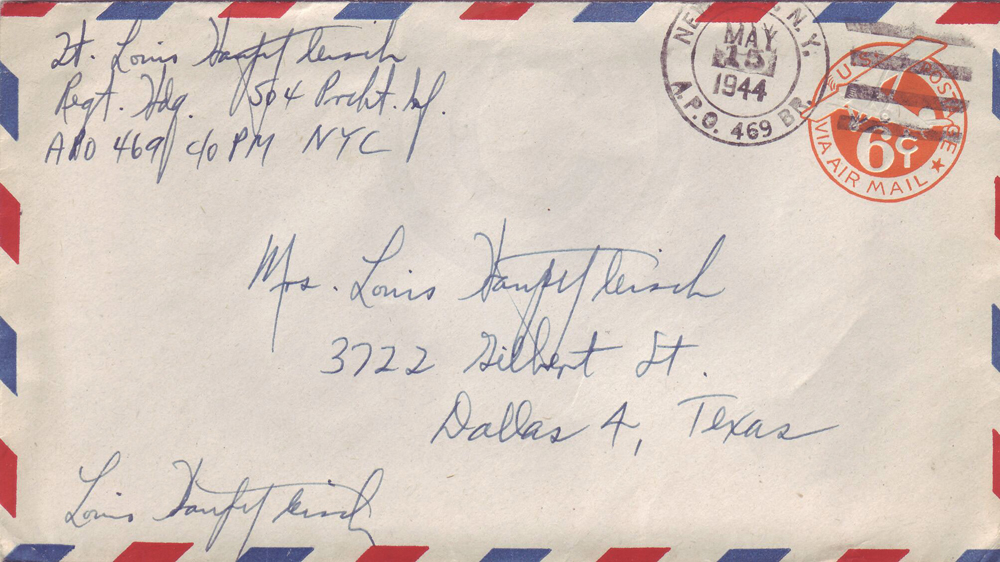 Lt. Louis Hauptfleisch
Regt. Hdq. 504 Prcht. Inf.
APO 469 c/o PM NYC
N.Y.
MAY
15
1944
A.P.O. 469 BR.
U.S. POSTAGE
6¢
VIA AIR MAIL
Mrs. Louis Hauptfleisch
3722 Gilbert St.
Dallas 4, Texas
Louis Hauptfleisch